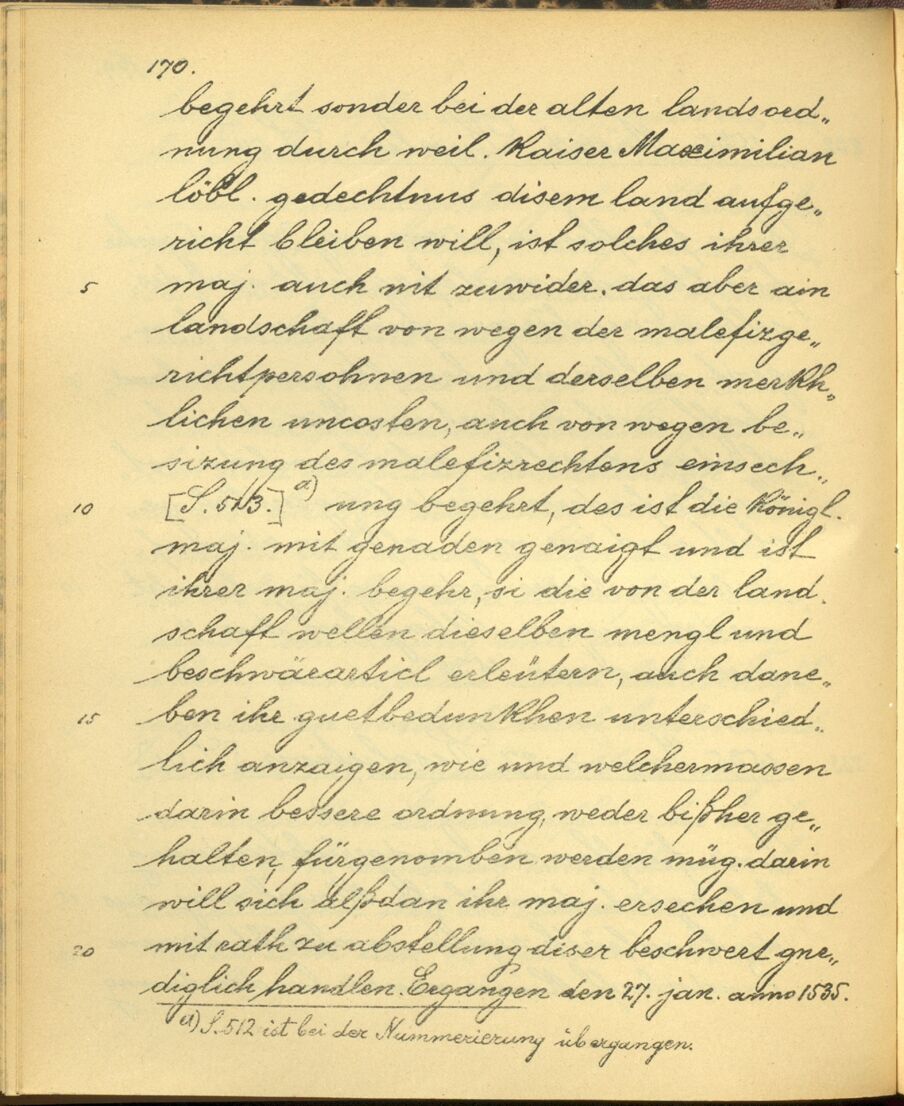 170.
begehrt sonder bei der alten landsord„
nung durch weil. Kaiser Maximilian
löbl. gedechtnus disem land aufge„
richt bleiben will, ist solches ihrer
5 maj. auch nit zuwider. das aber ain
landschaft von wegen der malefizge„
richtpersohnen und derselben merkh„
lichen uncosten, auch von wegen be„
sizung des malefizrechtens einsech„
10 [S. 513.] a) ung begehrt, des ist die Königl.
maj. mit genaden genaigt und ist
ihrer maj. begehr, si die von der land„
schaft wellen dieselben mengl und
beschwärarticl erleütern, auch dane„
15 ben ihr guetbedunkhen unterschied„
lich anzaigen, wie und welchermassen
darin bessere ordnung, weder bißher ge„
halten, fürgenomben werden müg. darin
will sich alßdan ihr maj. ersechen und
20 mit rath zu abstellung diser beschwert gne„
diglich handlen. Ergangen den 27. jan. anno 1535.
a) S. 512 ist bei der Nummerierung übergangen.